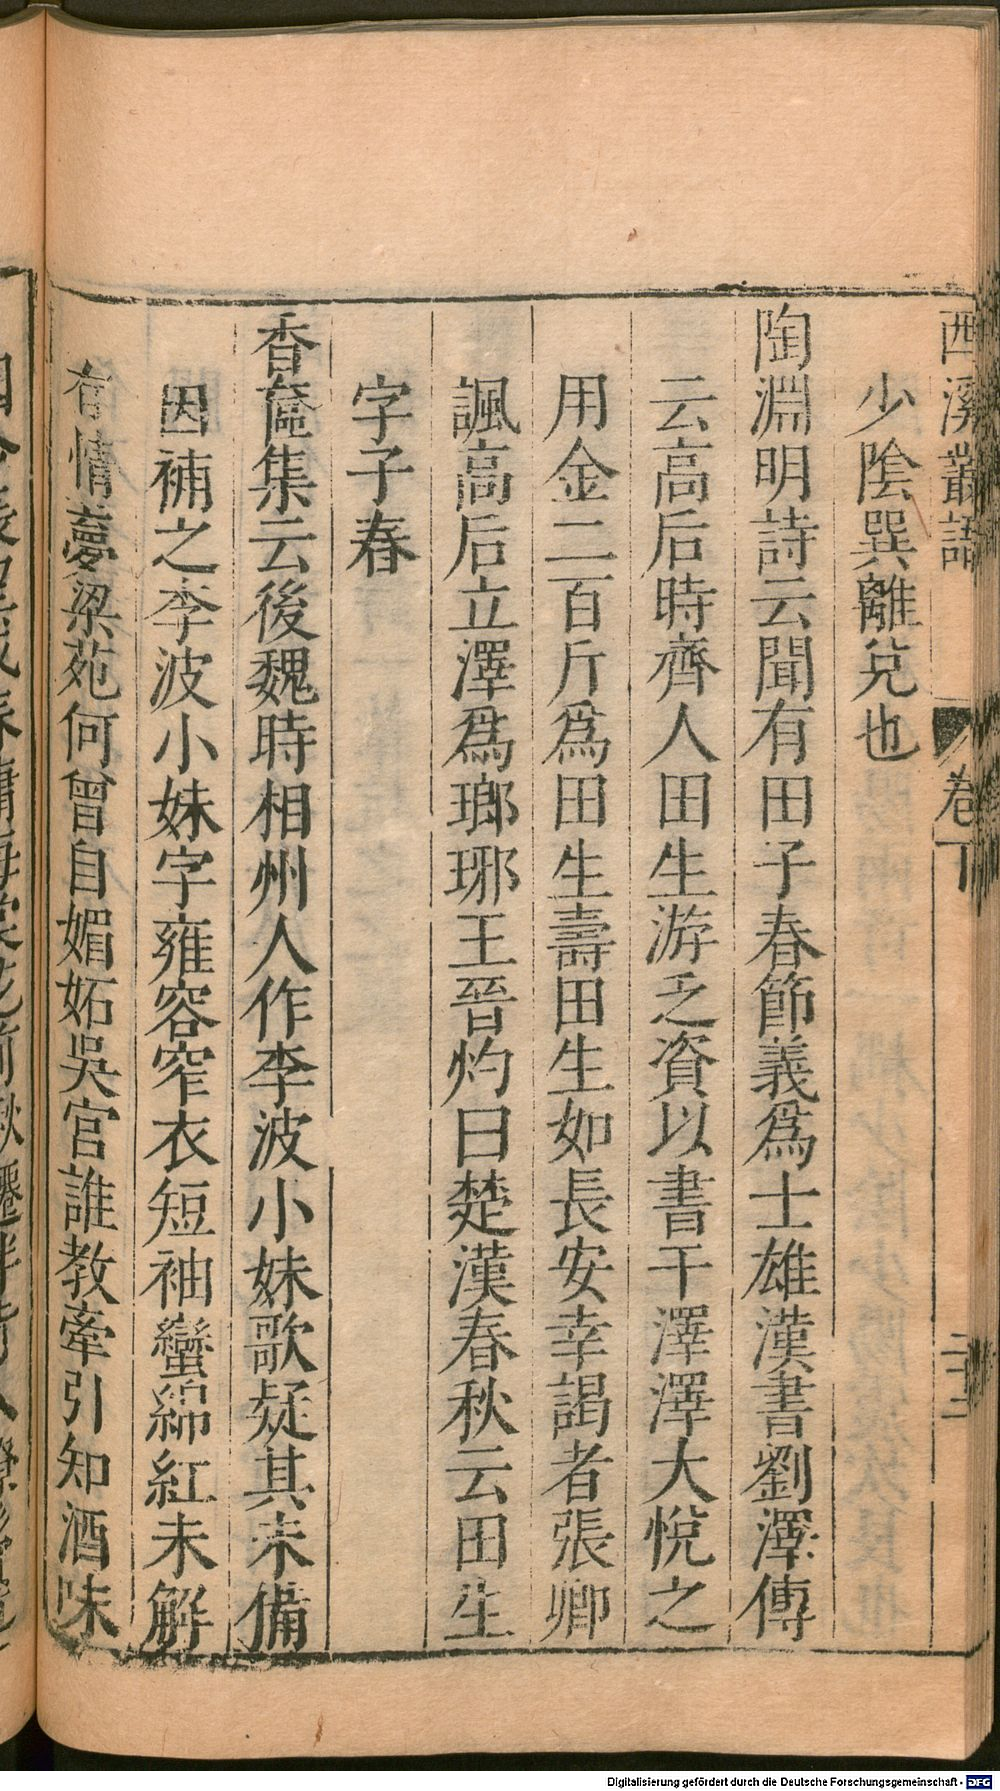 西溪叢語 卷下 二十二
少陰巽離兌也
陶淵明詩云聞有田子春節義爲士雄漢書劉澤傳
云高后時齊人田生游乏資以書干澤澤大悅之
用金二百斤爲田生壽田生如長安幸謁者張卿
諷高后立澤爲瑯琊王晉灼曰楚漢春秋云田生
字子春
香奩集云後魏時相州人作李波小妹歌疑其未備
因補之李波小妹字雍容窄衣短袖蠻綿紅未解
有情夢梁苑何曾自媚妬吳宮誰教牽引知酒味
Digitalisierung gefördert durch die Deutsche Forschungsgemeinschaft - DFG